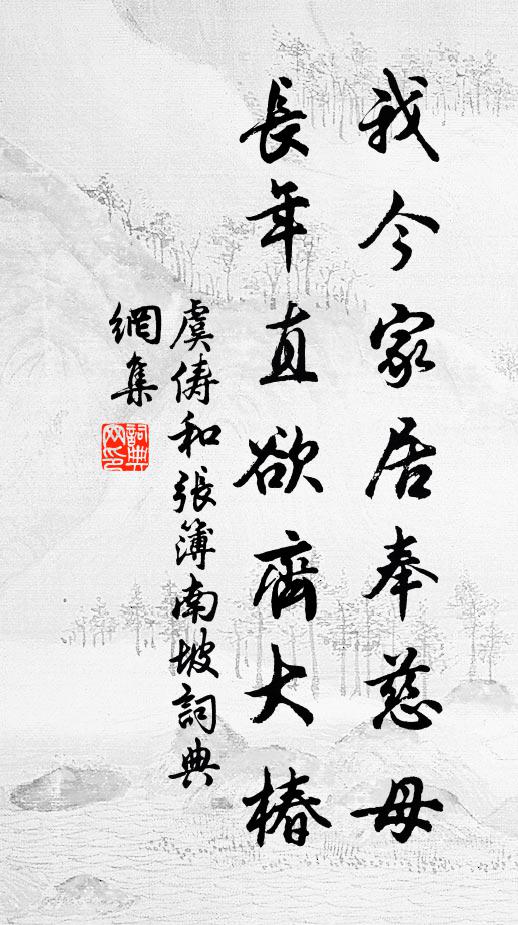 我今家居奉慈母
長年直欲齊大椿
虞俦和張簿南坡詞典
網集
詞典
网印